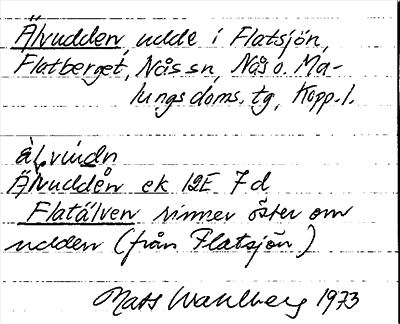 Älvudden, udde i Flatsjön,
Flatberget, Nås sn, Nås o. Ma-
lungs doms. tg, Kopp. l.
älvùdn
Älvudden ek 12E 7d
Flatälven rinner öster om
udden (från Flatsjön)
Mats Wahlberg 1973